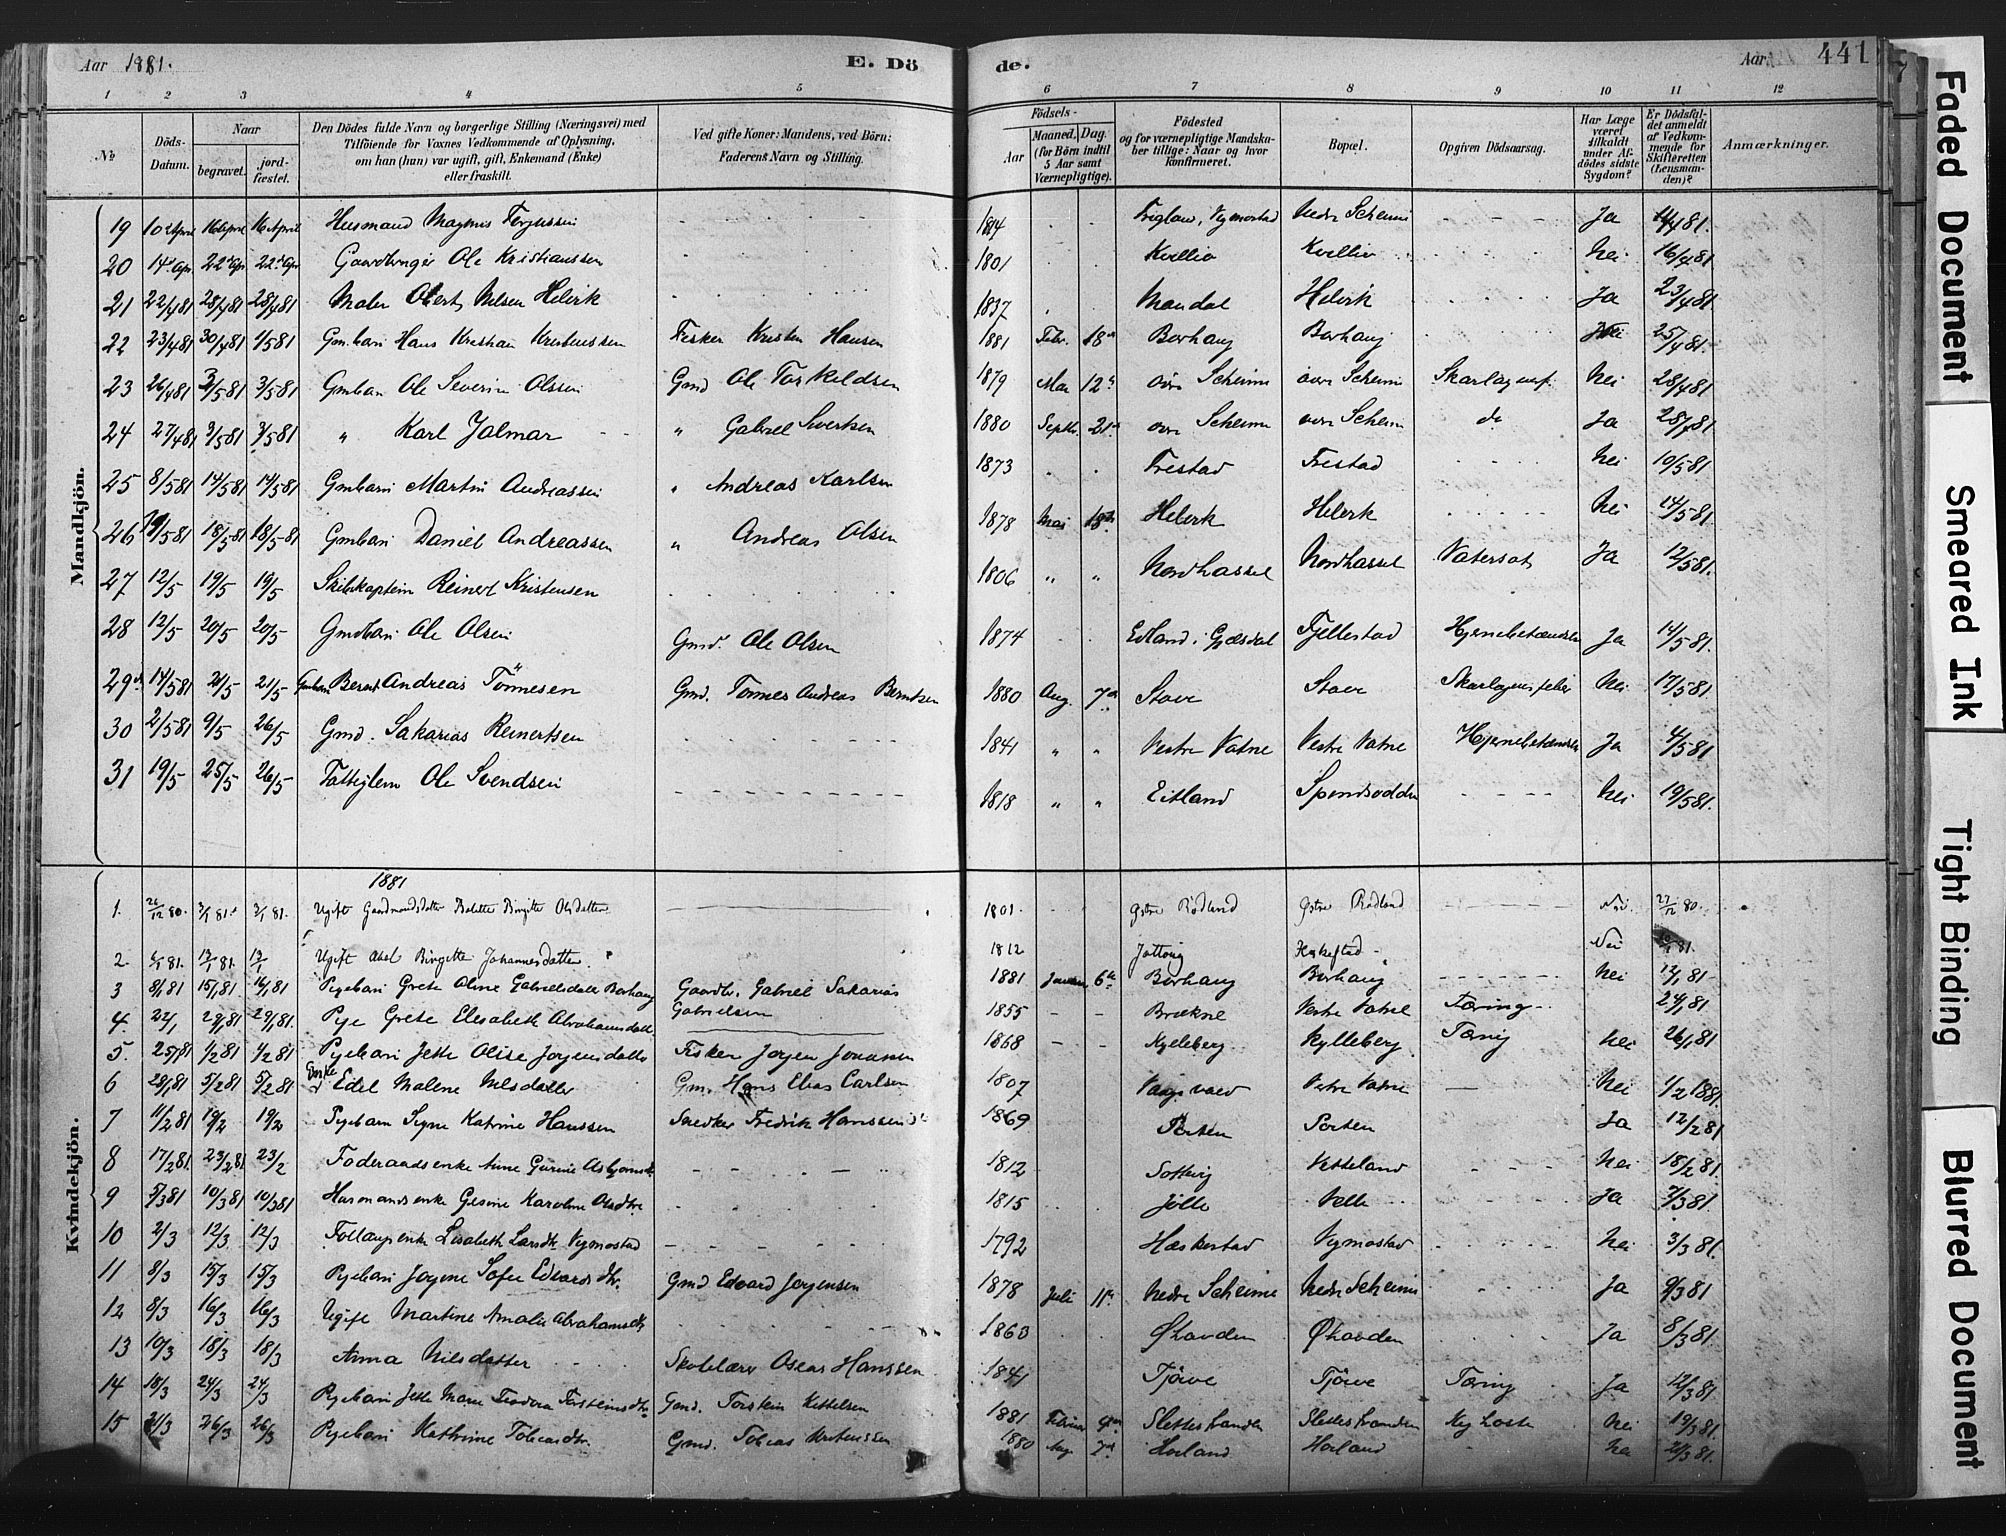 Aar 1881.
E. Dö
de.
Aar
441
1 2 3 4 5 6 7 8 9 10 11 12
No
Döds-Datum.
Naar
begravet.
jord-fæstet.
Den Dödes fulde Navn og borgerlige Stilling (Næringsvei) med
Tilföiende for Voxnes Vedkommende af Oplysning,
om han (hun) var ugift, gift, Enkemand (Enke)
eller fraskilt.
Ved gifte Koner: Mandens, ved Börn:
Faderens Navn og Stilling.
Födsels-
Aar
Maaned, Dag.
(for Börn indtil
5 Aar samt
Værnepligtige).
Födested
og for værnepligtige Mandska-
ber tillige: Naar og hvor
konfirmeret.
Bopæl.
Opgiven Dödsaarsag.
Har Læge
været
tilkaldt
under Af-
dödes sidste
Sygdom?
Er Dödsfal-
det anmeldt
af Vedkom-
mende for
Skifteretten
(Lensman-
den)?
Anmærkninger.
Mandkjön.
19 10 April 16 April 16 April Husmand Magnus Torjussen 1814 Vigmostad Nedre Scheime Ja 14/4 81.
20 14 Ap. 22 Ap 22 Ap Gaardbruger Ole Kristianssen 1801 Kvelliv Kvelliv Nei 16/4 81
21 22/4 81 28/4 81 28/4 81 Maler Nilsen Helvik 1837 Mandal Helvik Ja 23/4 81
22 23/4 81 30/4 81 1/5 81 Gmbarn Hans Kristian Kristenssen Fisker Kristen Hansen 1881 Febr. 18 Borhaug Borhaug 25/4 81.
23 26/4 81 3/5 81 3/5 81 Gmbarn Ole Severin Olssen Gmd Ole Torkeldsen 1879 12 övre Scheime övre Scheime Skarlagensf. Nei 28/4 81
24 27/4 81 3/5 81 3/5 81 " Karl Jalmar " Gabriel Sivertsen 1880 Septb. 21 övre Scheime övre Scheime do Ja 28/4 81
25 8/5 81 14/5 81 14/5 81 Gmbarn Martin Andreassen " Andreas Karlsen 1873 Frestad Frestad Nei 10/5 81
26 /5 81 18/5 81 18/5 81 Gmbarn Daniel Andreassen " Andreas Olsen 1878 Mai 18 Helvik Helvik Nei 14/5 81.
27 12/5 19/5 19/5 Skibskaptein Reinert Kristensen 1806 " " Nordhassel Nordhassel Vatersot Ja 12/5 81.
28 12/5 20/5 20/5 Gmdbarn Ole Olsen Gmd. Ole Olsen 1874 Edland i Gjæsdal Fjellestad Hjernebetændelse Ja 14/5 81.
29 14/5 81 21/5 21/5 Gmbarn Bernt Andreas Tönnesen Gmd. Tönnes Andreas Berntsen 1880 Aug. 7 Stave Stave Skarlagensfeber Nei 17/5 81.
30 2/5 81 9/5 26/5 Gmd. Sakarias Reinertsen 1841 " " Vestre Vatne Vestre Vatne Hjernebetændelse Ja 4/5 81
31 19/5 25/5 26/5 Fattiglem Ole Svendsen 1818 " " Eitland Spindsodden Nei 19/5 81.
Kvindekjön.
1881
1. 22/12 80. 3/1 81. 3/1 81. Ugift Gaardmandsdatter Bolette Birgitte Olsdatter 1801. Østre Rødland Østre Rødland Nei. 27/12 80.
2. /1 81. 13/1 81. 13/1 Ugift Abel Birgitte Johannesdatter. 1812 Jottvig Hukestad Nei 81.
3 8/1 81 15/1 81. 16/1 81 Pigebarn Grete Oline Gabrielsdatter Borhaug Gaardbr. Gabriel Sakarias Gabrielsen 1881 Januar 6 Borhaug Borhaug Nei 13/1 81
4. 22/1 29/1 81 29/1 81. Pige Grete Elisabeth Abrahamsdatter 1855 Brækne Vestre Vatne Tæring 24/1 81
5. 25/1 81 1/2 81 1/2 81 Pigebarn Jette Olise Jørgensdatter Fisker Jørgen Jonassen 1868 Kylleberg Kylleberg Tæring Nei 26/1 81
6 28/1 81 5/2 81 5/2 81 Enke Edel Malene Nilsdatter Gm. Hans Elias Carlsen 1807 Vaagsvold Vestre Vatne Nei 1/2 1881.
7 11/2 81 19/2 19/2 Pigebarn Signe Katrine Hanssen Snedker Fredrik Hanssen 1869 Porten Porten Ja 12/2 81
8 17/2 81. 23/2 81 23/2 Føderaadsenke Anne Gurine Asbjørnsdtr 1812 Sottvig Vetteland Nei 18/2 81.
9 5/3 81 10/3 81 10/3 81 Husmandsenke Gesine Karoline Olsdtr 1815 Jølle Velle Ja 7/3 81.
10 2/3 12/3 12/3 Follaugsenke Lisabeth Larsdtr Vigmostad 1792 Hæskestad Vigmostad Nei 3/3 81.
11 8/3 15/3 15/3 Pigebarn Jørgine Sofie Edvardsdtr. Gmd Edvard Jørgensen 1878 Juli 11 Nedre Scheime Nedre Scheime Ja 9/3 81
12 8/3 16/3 16/3 Ugift Martine Amalie Abrahamsdtr 1863 Ølanden Ølanden Ja 8/3 81.
13 10/3 18/3 18/3 Anna Nilsdatter Skolelærer Oscar Hanssen 1841 Tjörve Tjörve Tæring Ja 12/3 81.
14 18/3 24/3 24/3 Pigebarn Jette Marie Teodora Torsteinsdtr Gmd. Torstein Kittelsen 1881 Februar Slettestranden Slettestranden Kighoste Nei 19/3 81.
15 21/3 26/3 26/3 Pigebarn Kathrine Tobiasdtr. Gmd. Tobias Kristenssen 1880 Aug. 7 Horland Horland Nei 21/3 81.
Faded Document
Smeared Ink
Tight Binding
Blurred Document